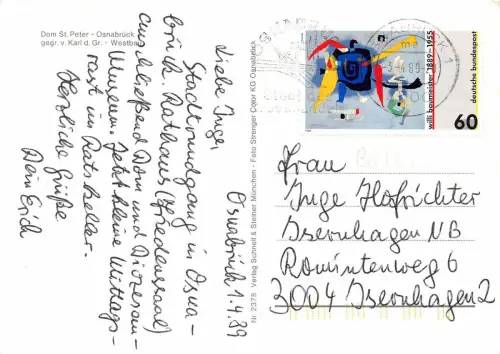 Dom St. Peter - Osnabrück
gegr. v. Karl d. Gr. - Westbau
Osnabrück 1.4.89
Liebe Inge,
Stadtrundgang in Osna-
brück Rathaus (Friedenssaal)
anschließend Dom und Diözesan-
Museum. Jetzt kleine Mittags-
rast im Ratskeller.
Herzliche Grüße
Dein Erich
Verlag Schnell & Steiner München - Foto Strenger Color KG Osnabrück
willi baumeister 1889-1955
deutsche bundespost
60
Frau
Inge Hofrichter
Isernhagen NB
Romintenweg 6
3004 Isernhagen 2